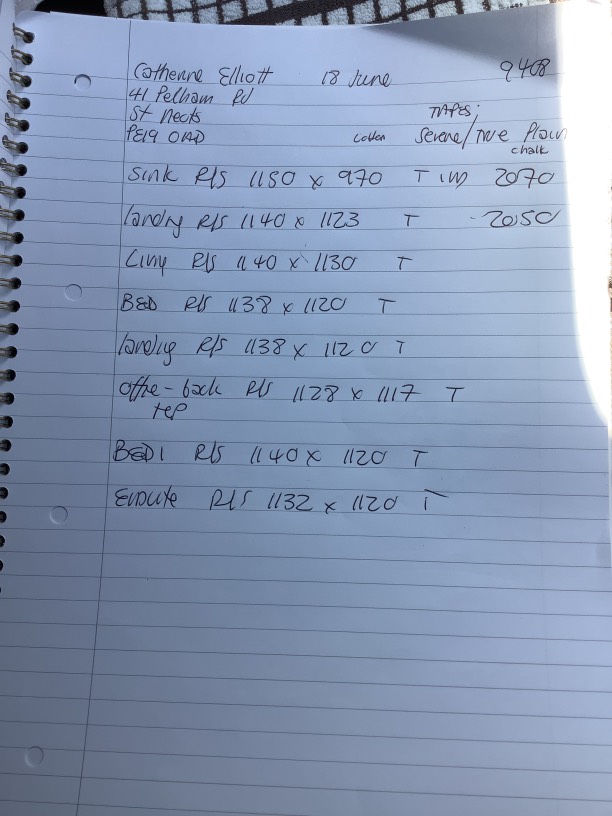 Catherine Elliott 18 June 9408
41 Pelham Rd
St Neots TAPES:
PE19 OAD Serene/ Plain
chalk
Sink R/S 1150 x 970 T 2070
landing R/S 1140 x 1123 T 2050
R/S 1140 x 1130 T
BED R/S 1138 x 1120 T
landing R/S 1138 x 1120 T
back R/S 1128 x 1117 T
BED 1 R/S 1140 x 1120 T
Ensuite R/S 1132 x 1120 T